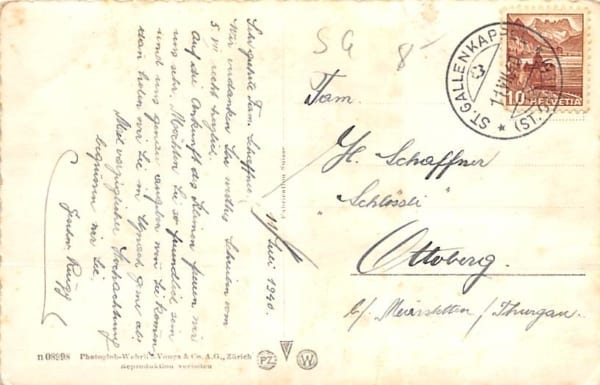 11. Juli 1940.
Sehr geehrte Fam. Schaffner!
Wir verdanken Ihr wertes Schreiben vom
5. VII recht herzlich.
Auf die Ankunft des Kleinen freuen wir
uns sehr. Möchten Sie so freundlich sein
und uns genau angeben wann Sie kommen,
dann holen wir Sie in
Mit vorzüglicher Hochachtung
Rüegg
SG 8-
Fam.
H. Schaffner
"Schlössli"
Ottoberg.
b/. Märstetten / Thurgau.
ST. GALLENKAPPEL
(ST. G
10 HELVETIA
n 08998 Photoglob-Wehrli & Vouga & Co. A.G., Zürich
Reproduktion verboten
PZ W